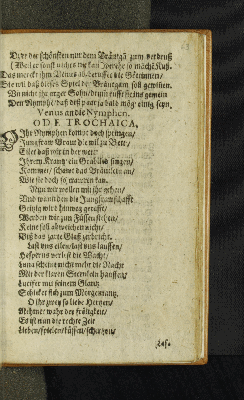 Drey der schönsten nun dem Bräutga zum verdruß
Das merckt ihm Venus ab/berufft die Göttinnen/
Die wil daß dieses Spiel der Bräutgam soll gewinnen.
Den Nymphen/daß diß paar ja bald mög einig seyn.
Venus an die Nymphen.
ODE TROCHAICA,
Ihr Nymphen kommt doch springen/
Jungfraw Braut die wil zu Bette/
Eilet daß wir in der wette
Ihrem Krantz ein Grablied singen/
Kommet/schawet das Bräutlein an/
Wie sie doch so trawren kan.
Nun wir wollen mit ihr gehen/
Und wann dann die Jungfrawschafft
Werden wir zum Füssen stehen/
Keine soll abweichen nicht/
Biß das zarte Glaß zerbricht.
Last uns eilen/last uns lauffen/
Hesperus verlest die Wacht/
Luna scheint nicht mehr die Nacht
Mit der klaren Sternlein hauffen/
Lucifer mit seinem Glantz
Schicket sich zum Morgentantz.
O ihr zwey so liebe Hertzen/
Nehmet wahr der fröligkeit/
Es ist nun die rechte Zeit
Lieben/spielen/küssen/schertzen/